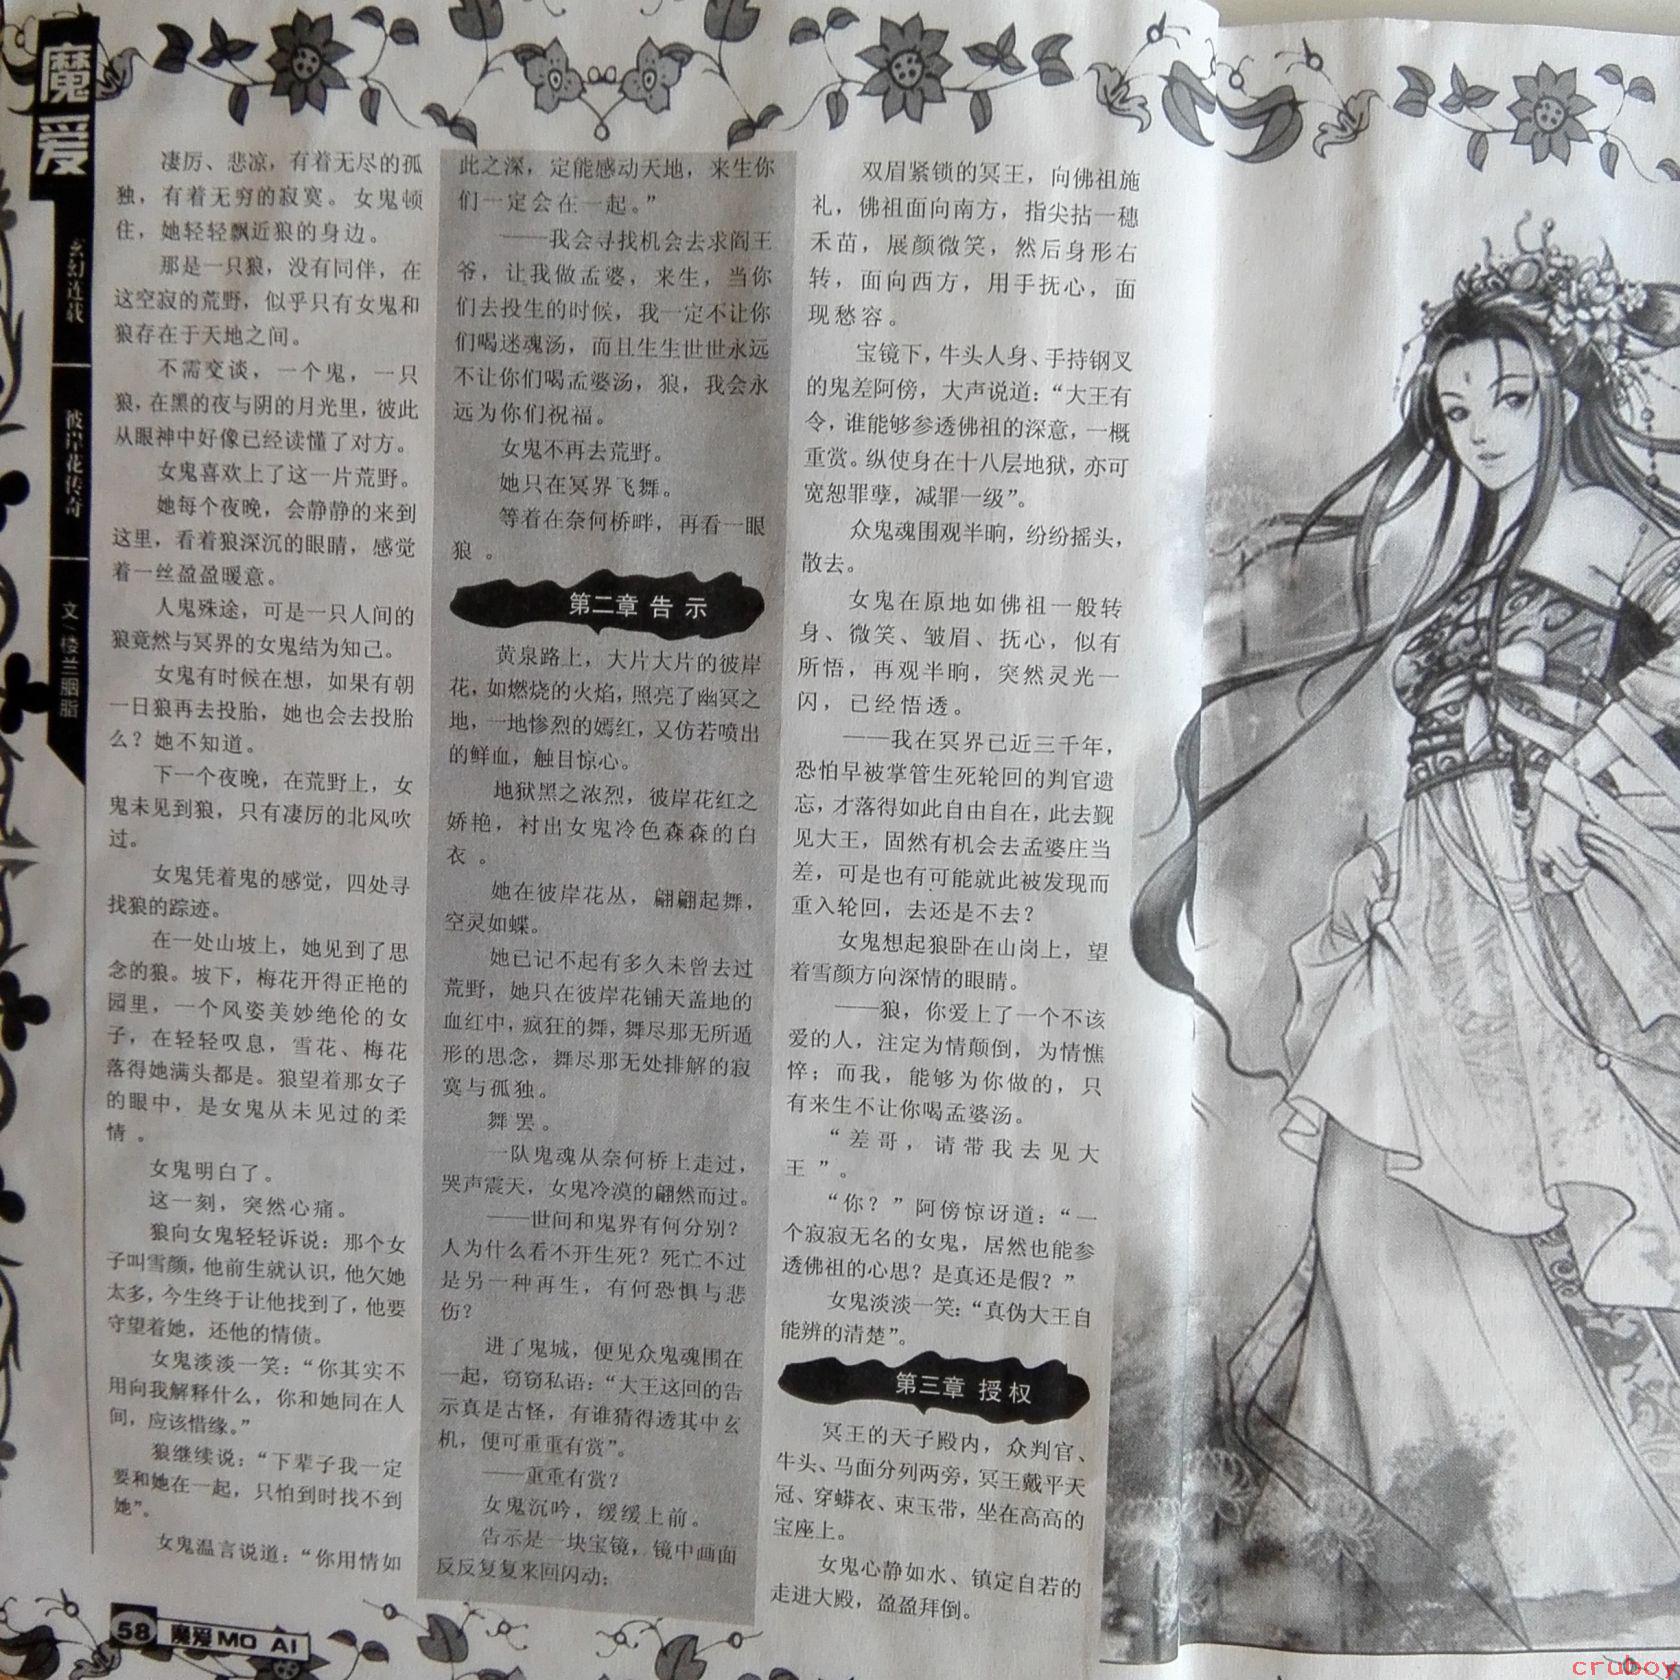 魔爱
玄幻连载
彼岸花传奇
文/楼兰胭脂
凄厉、悲凉，有着无尽的孤
独，有着无穷的寂寞。女鬼顿
住，她轻轻飘近狼的身边。
那是一只狼，没有同伴，在
这空寂的荒野，似乎只有女鬼和
狼存在于天地之间。
不需交谈，一个鬼，一只
狼，在黑的夜与阴的月光里，彼此
从眼神中好像已经读懂了对方。
女鬼喜欢上了这一片荒野。
她每个夜晚，会静静的来到
这里，看着狼深沉的眼睛，感觉
着一丝盈盈暖意。
人鬼殊途，可是一只人间的
狼竟然与冥界的女鬼结为知己。
女鬼有时候在想，如果有朝
一日狼再去投胎，她也会去投胎
么？她不知道。
下一个夜晚，在荒野上，女
鬼未见到狼，只有凄厉的北风吹
过。
女鬼凭着鬼的感觉，四处寻
找狼的踪迹。
在一处山坡上，她见到了思
念的狼。坡下，梅花开得正艳的
园里，一个风姿美妙绝伦的女
子，在轻轻叹息，雪花、梅花
落得她满头都是。狼望着那女子
的眼中，是女鬼从未见过的柔
情。
女鬼明白了。
这一刻，突然心痛。
狼向女鬼轻轻诉说：那个女
子叫雪颜，他前生就认识，他欠她
太多，今生终于让他找到了，他要
守望着她，还他的情债。
女鬼淡淡一笑：“你其实不
用向我解释什么，你和她同在人
间，应该惜缘。”
狼继续说：“下辈子我一定
要和她在一起，只怕到时找不到
她”。
女鬼温言说道：“你用情如
此之深，定能感动天地，来生你
们一定会在一起。”
——我会寻找机会去求阎王
爷，让我做孟婆，来生，当你
们去投生的时候，我一定不让你
们喝迷魂汤，而且生生世世永远
不让你们喝孟婆汤，狼，我会永
远为你们祝福。
女鬼不再去荒野。
她只在冥界飞舞。
等着在奈何桥畔，再看一眼
狼。
第二章 告示
黄泉路上，大片大片的彼岸
花，如燃烧的火焰，照亮了幽冥之
地，一地惨烈的嫣红，又仿若喷出
的鲜血，触目惊心。
地狱黑之浓烈，彼岸花红之
娇艳，衬出女鬼冷色森森的白
衣。
她在彼岸花丛，翩翩起舞，
空灵如蝶。
她已记不起有多久未曾去过
荒野，她只在彼岸花铺天盖地的
血红中，疯狂的舞，舞尽那无所遁
形的思念，舞尽那无处排解的寂
寞与孤独。
舞罢。
一队鬼魂从奈何桥上走过，
哭声震天，女鬼冷漠的翩然而过。
——世间和鬼界有何分别？
人为什么看不开生死？死亡不过
是另一种再生，有何恐惧与悲
伤？
进了鬼城，便见众鬼魂围在
一起，窃窃私语：“大王这回的告
示真是古怪，有谁猜得透其中玄
机，便可重重有赏”。
——重重有赏？
女鬼沉吟，缓缓上前。
告示是一块宝镜，镜中画面
反反复复来回闪动：
双眉紧锁的冥王，向佛祖施
礼，佛祖面向南方，指尖拈一穗
禾苗，展颜微笑，然后身形右
转，面向西方，用手抚心，面
现愁容。
宝镜下，牛头人身、手持钢叉
的鬼差阿傍，大声说道：“大王有
令，谁能够参透佛祖的深意，一概
重赏。纵使身在十八层地狱，亦可
宽恕罪孽，减罪一级”。
众鬼魂围观半晌，纷纷摇头，
散去。
女鬼在原地如佛祖一般转
身、微笑、皱眉、抚心，似有
所悟，再观半晌，突然灵光一
闪，已经悟透。
——我在冥界已近三千年，
恐怕早被掌管生死轮回的判官遗
忘，才落得如此自由自在，此去觐
见大王，固然有机会去孟婆庄当
差，可是也有可能就此被发现而
重入轮回，去还是不去？
女鬼想起狼卧在山岗上，望
着雪颜方向深情的眼睛。
——狼，你爱上了一个不该
爱的人，注定为情颠倒，为情憔
悴；而我，能够为你做的，只
有来生不让你喝孟婆汤。
“差哥，请带我去见大
王”。
“你？”阿傍惊讶道：“一
个寂寂无名的女鬼，居然也能参
透佛祖的心思？是真还是假？”
女鬼淡淡一笑：“真伪大王自
能辨的清楚”。
第三章 授权
冥王的天子殿内，众判官、
牛头、马面分列两旁，冥王戴平天
冠、穿蟒衣、束玉带，坐在高高的
宝座上。
女鬼心静如水、镇定自若的
走进大殿，盈盈拜倒。
58 魔爱MO AI
cruboy